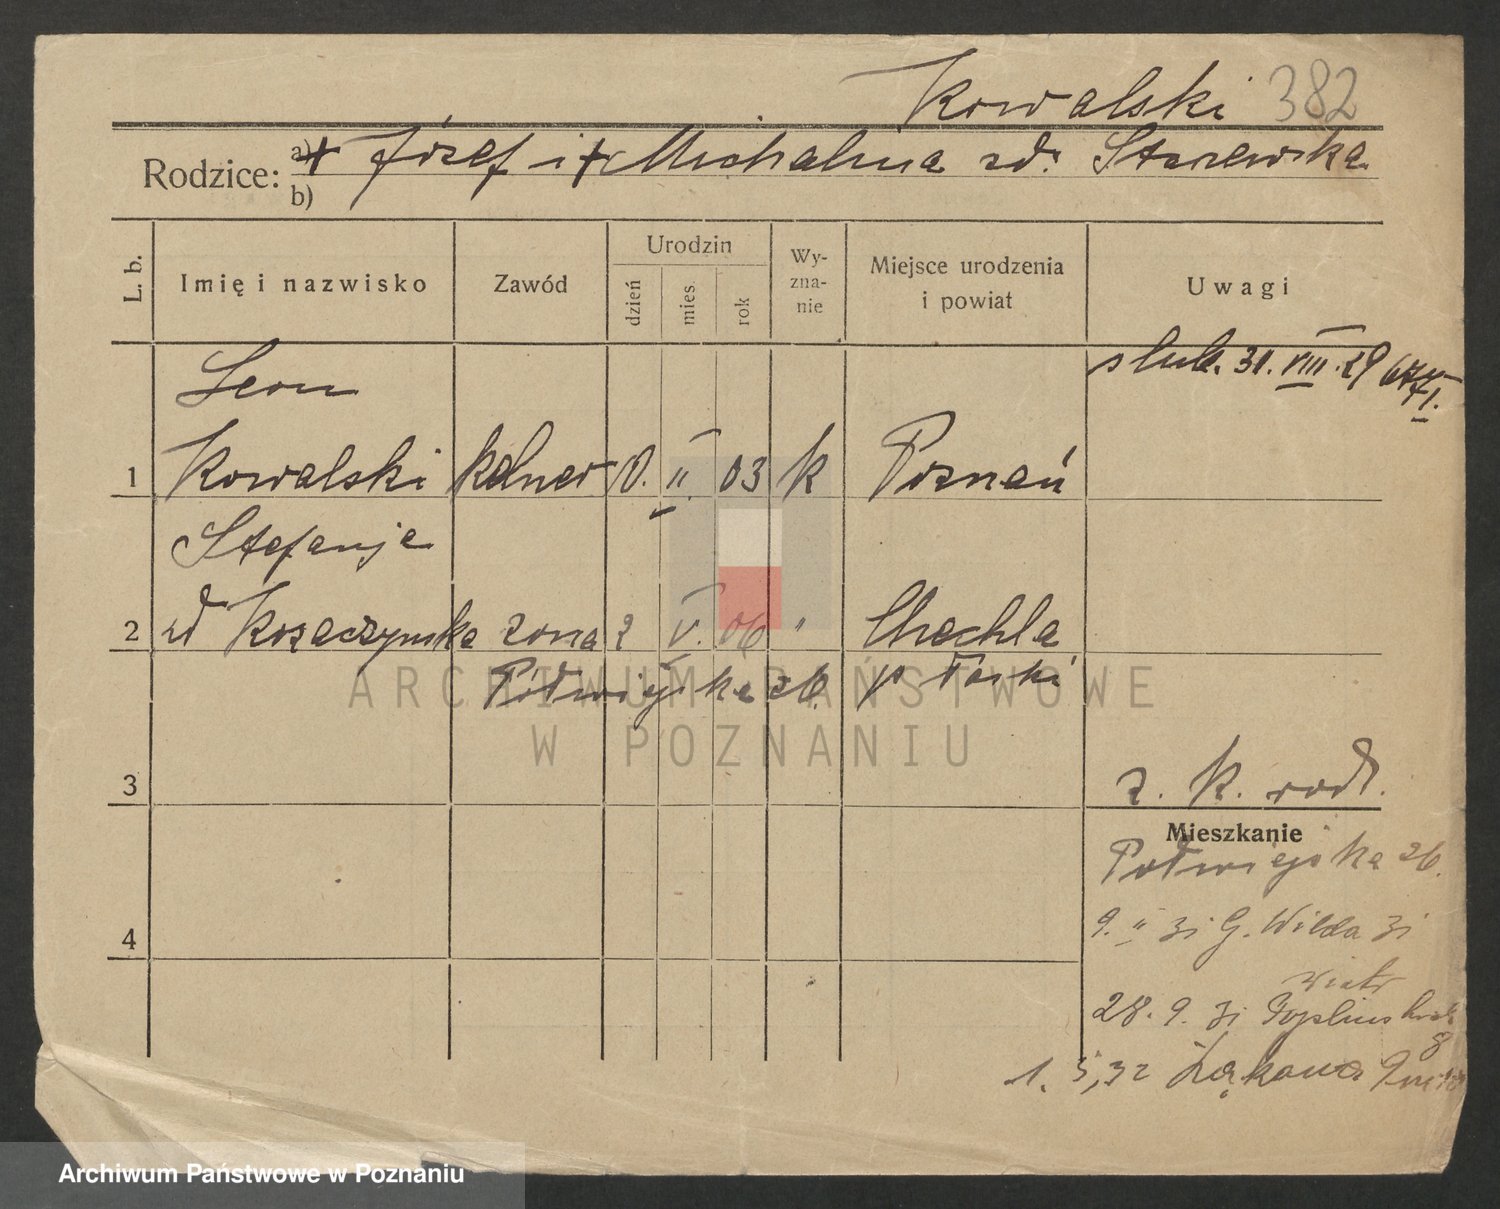 Kowalski 382
Rodzice: a) + Józef i + Michalina zd. Staszewska
b)
L. b. Imię i nazwisko Zawód Urodzin dzień mies. rok Wy-zna-nie Miejsce urodzenia i powiat Uwagi
slub. 31. VIII. 29
Leon
1 Kowalski kelner II 03 k Poznań
Stefanja
2 zd Kozaczynska zona 2 V. 06 " Chechla
Półwiejska 26. p Łaski
ARCHIWUM PAŃSTWOWE
W POZNANIU
3 z. K. rodz.
Mieszkanie
Półwiejska 26.
4 9. II 31 G. Wilda 31
28. 9. 31
8
1. 5, 32 Łąkowa
Archiwum Państwowe w Poznaniu